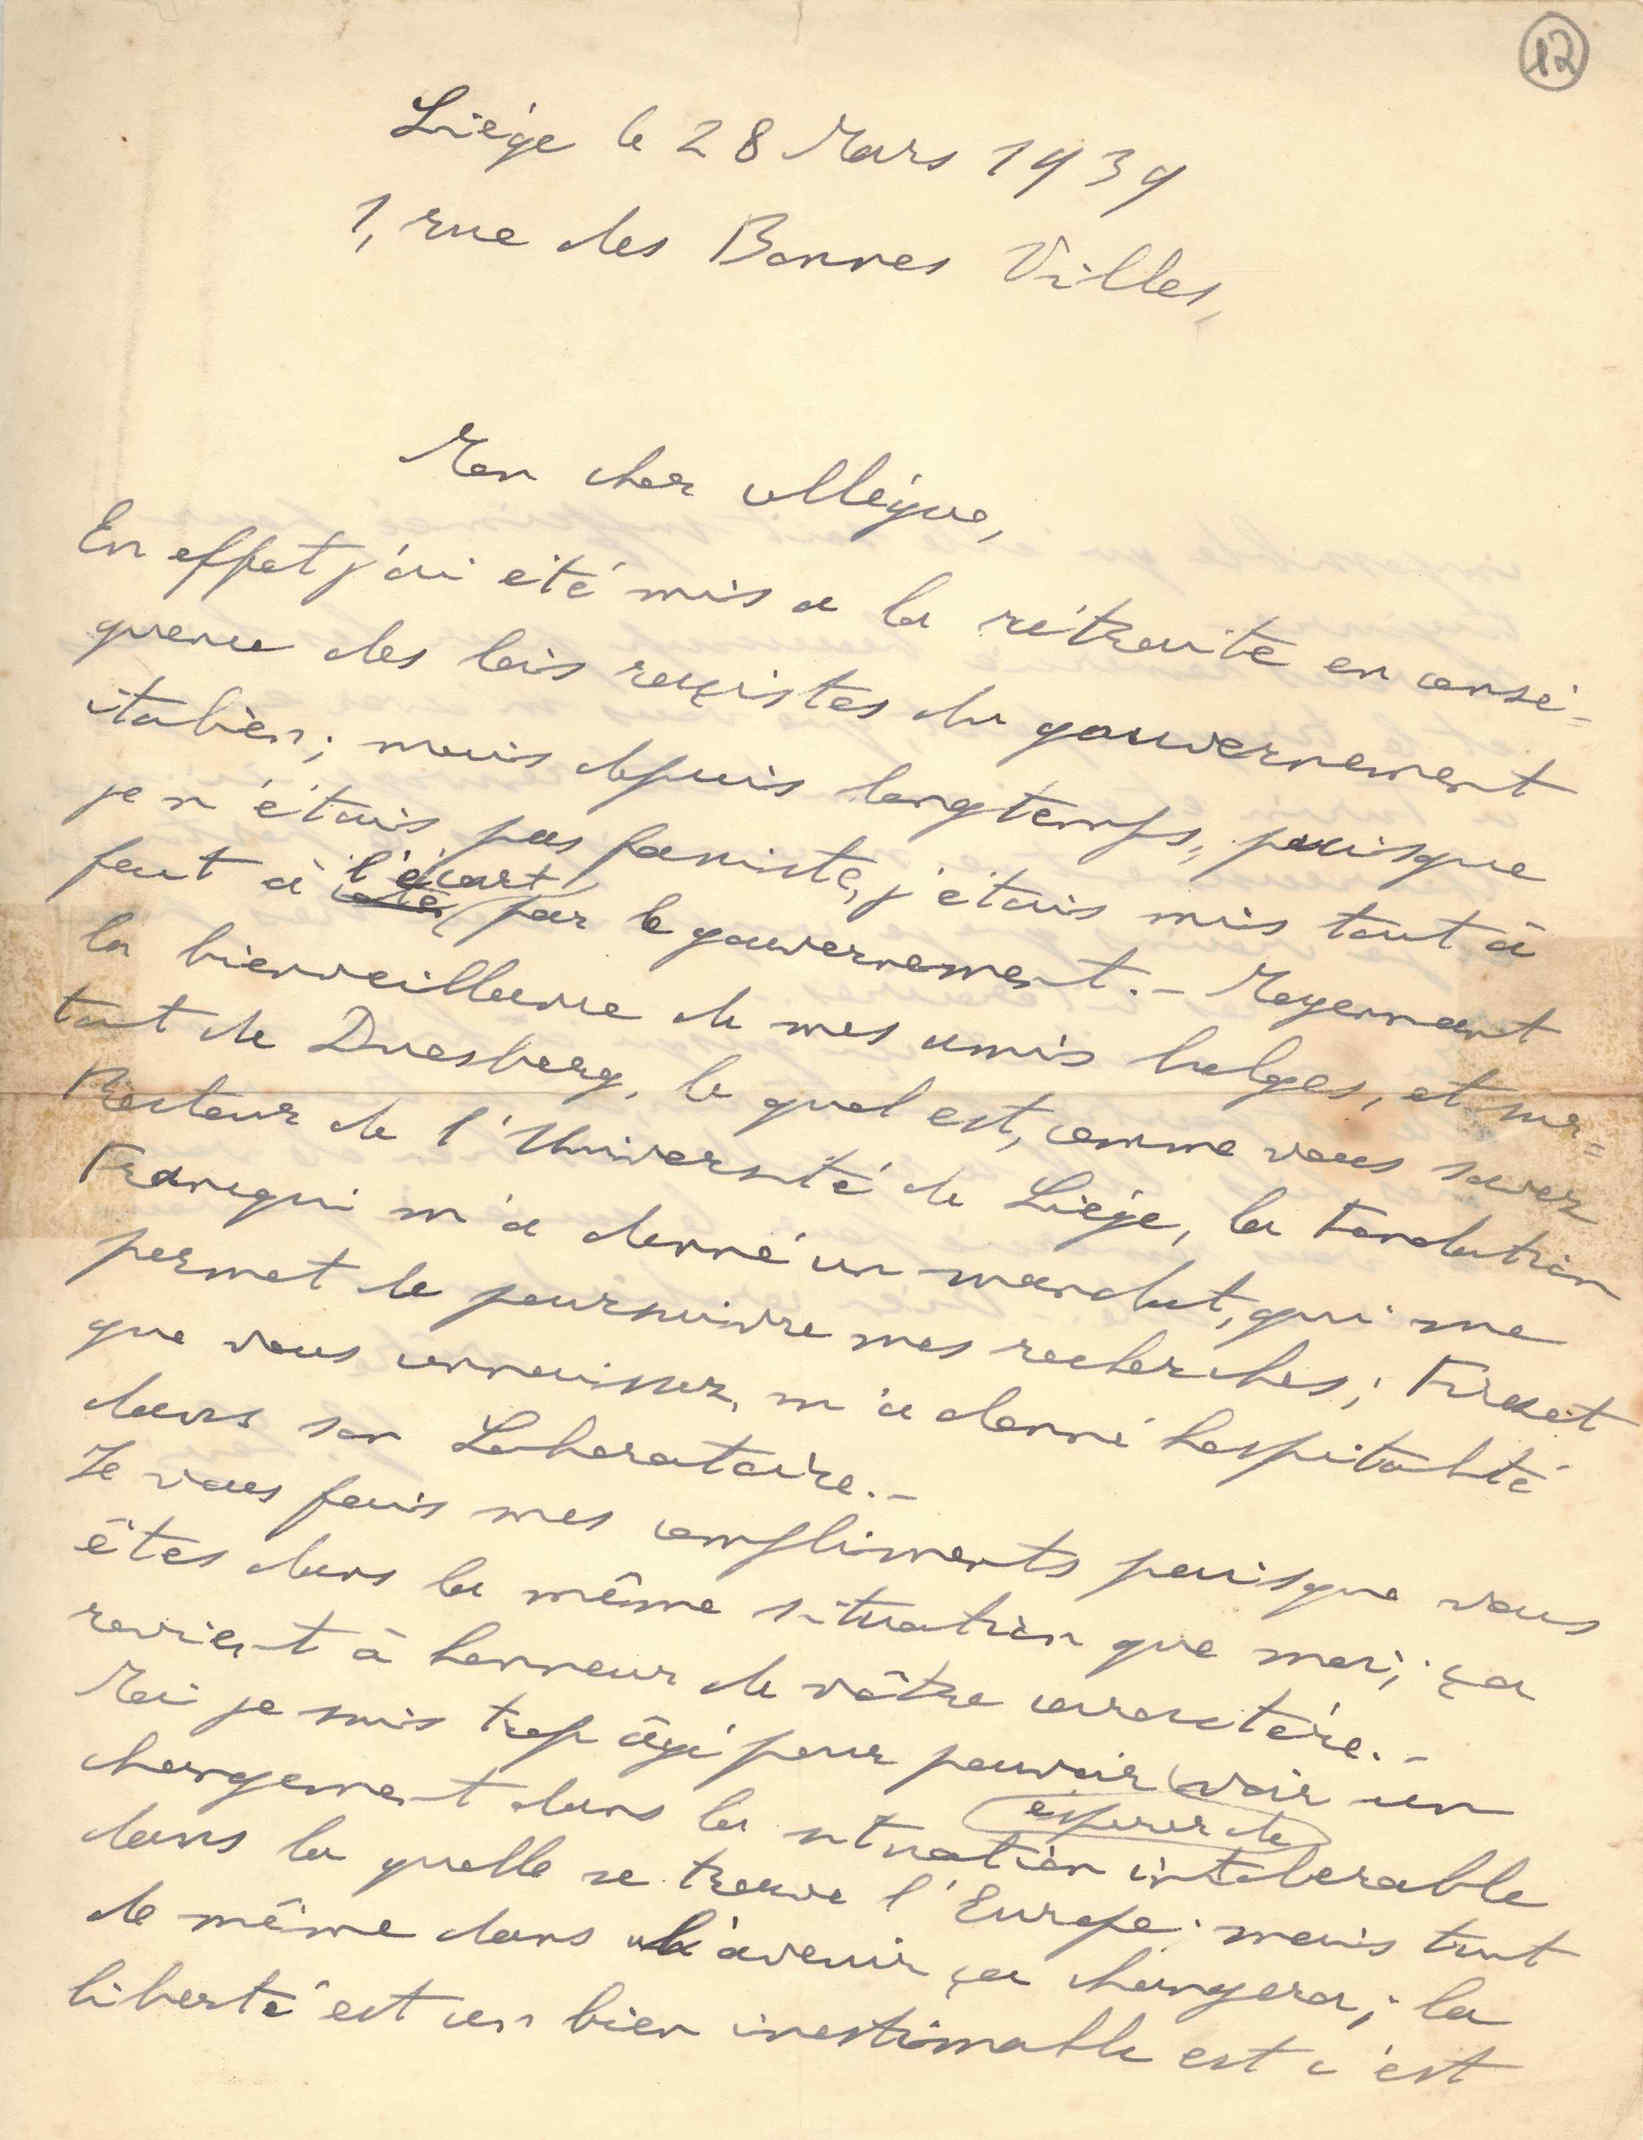 12
Liége le 28 Mars 1939
1, rue des Bonnes Villes,
Mon cher collégue,
En effet j'ai eité mis a la rétraite en consé-
quence des lois racistes du gouvernement
italien; mais depuis longtemps, puisque
je n'étais pas fasciste, j'étais mis tout à
fait à l'écart par le gouvernement.- Moyennant
la bienveillance de mes amis belges, et sur=
tout de Duesberg, le quel est, comme vous savez
Recteur de l'Université de Liége, la Fondation
Francqui m'a donné un mandat, qui me
permet de poursuivre mes recherches; Firket
que vous connaissez, m'a donné hospitalité
dans son Laboratoire.-
Je vous fais mes compliments puisque vous
êtes dans la même situation que moi; ça
revient à honneur de vôtre caractére.-
Moi je suis trop âgé pour pouvoir voir un
espérer de
changement dans la situation intolerable
dans la quelle se trouve l'Europe; mais tout
de même dans l'avenir ça changera; la
liberté est un bien inestimable est c'est